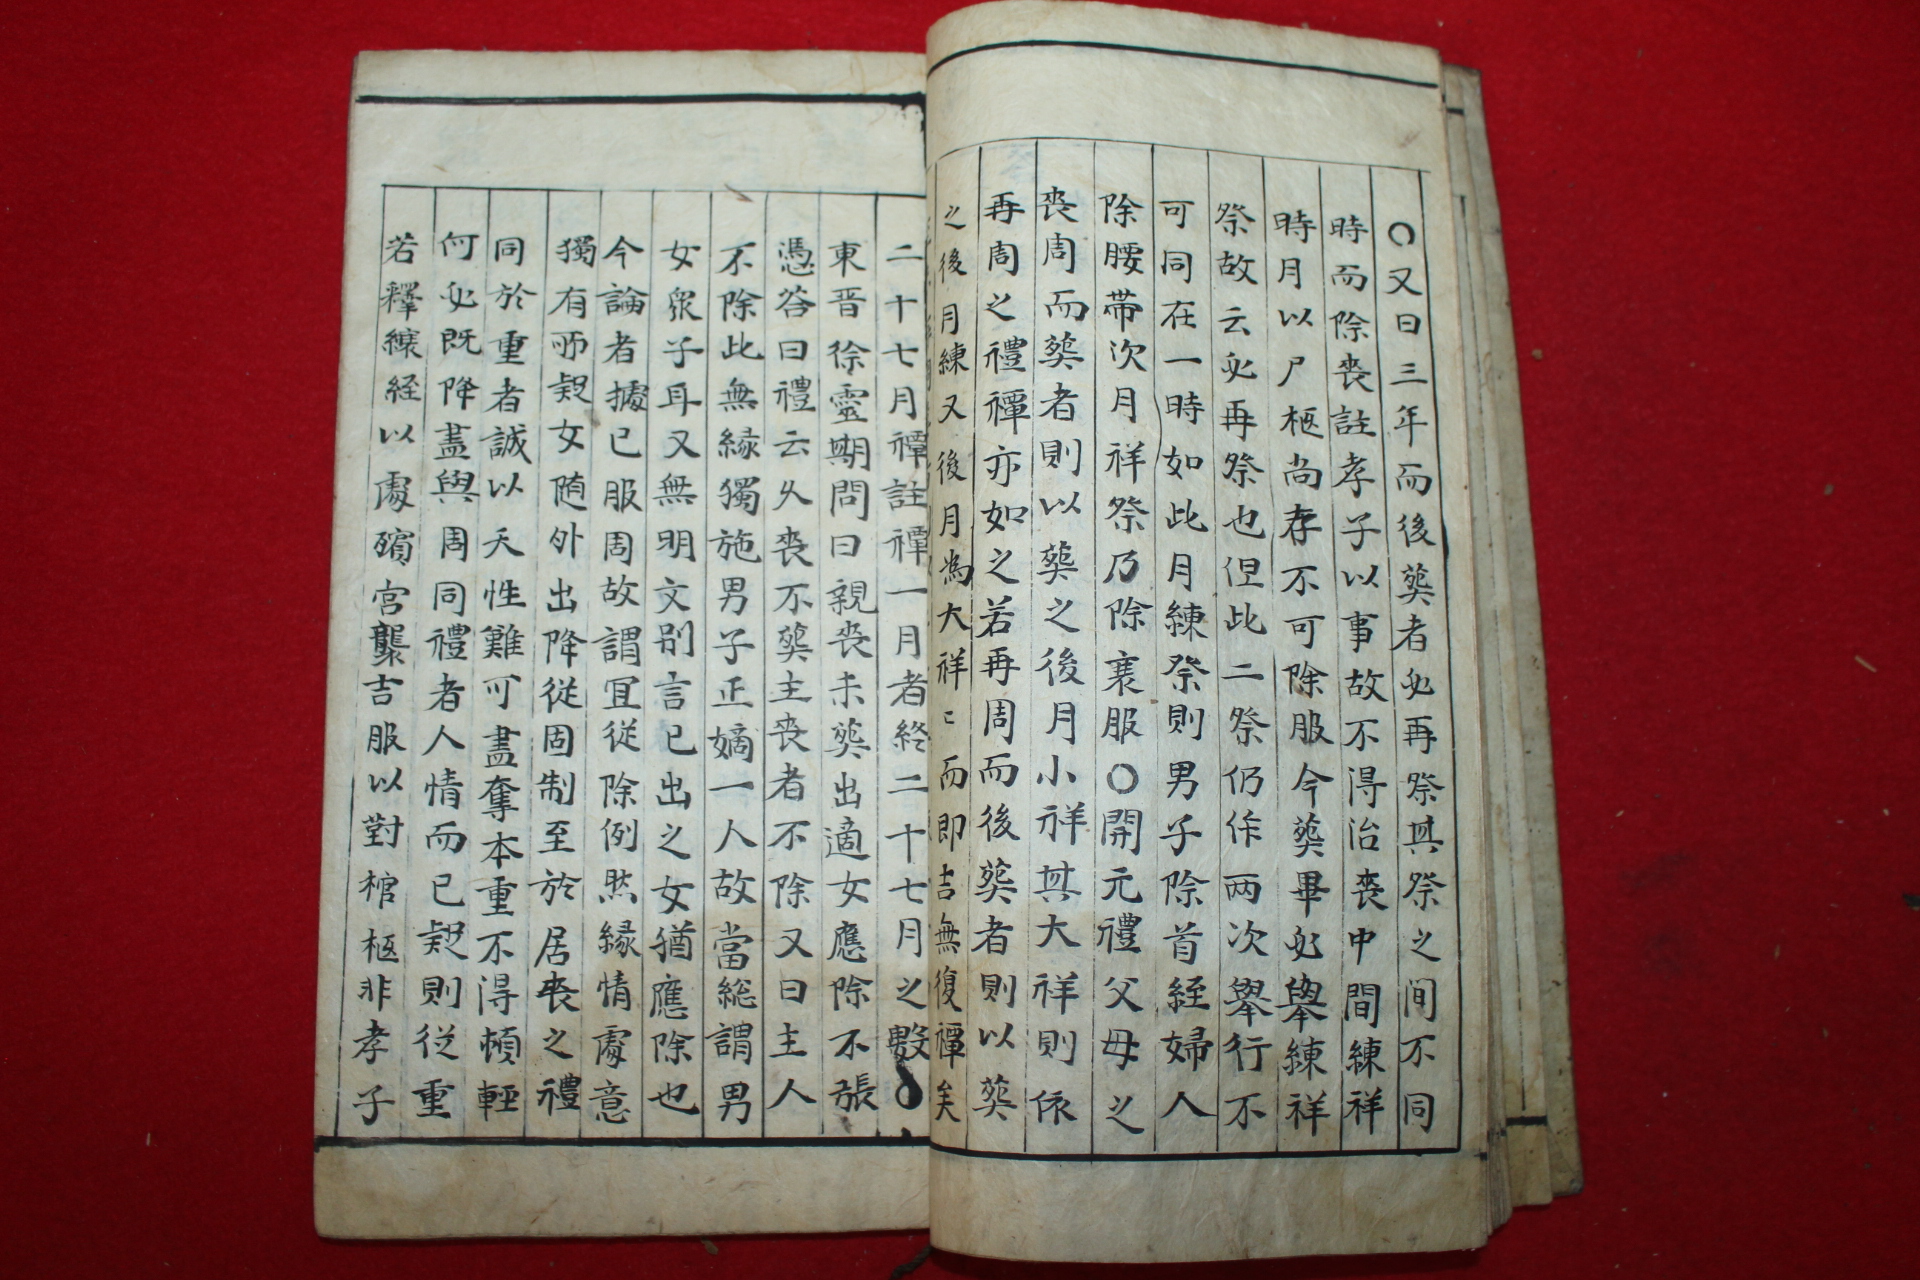 ○又曰三年而後葬者必再祭其祭之間不同
時而除喪註孝子以事故不得治喪中間練祥
時月以尸柩尚存不可除服今葬畢必擧練祥
祭故云必再祭也但此二祭仍作両次擧行不
可同在一時如此月練祭則男子除首絰婦人
除腰帶次月祥祭乃除衰服○開元禮父母之
喪周而葬者則以葬之後月小祥其大祥則依
再周之禮禫亦如之若再周而後葬者則以葬
之後月練又後月為大祥〻而即吉無復禫矣
二十七月禫註禫一月者終二十七月之數
東晋徐靈期問曰親喪未葬出適女應除不張
憑答曰禮云久喪不葬主喪者不除又曰主人
不除此無縁獨施男子正嫡一人故當総謂男
女衆子耳又無明文別言已出之女猶應除也
今論者據已服周故謂冝從除例然縁情處意
獨有所疑女随外出降從固制至於居喪之禮
同於重者誠以天性難可盡奪本重不得頓輕
何必既降盡與周同禮者人情而已疑則從重
若釋縗絰以處殯宮襲吉服以對棺柩非孝子